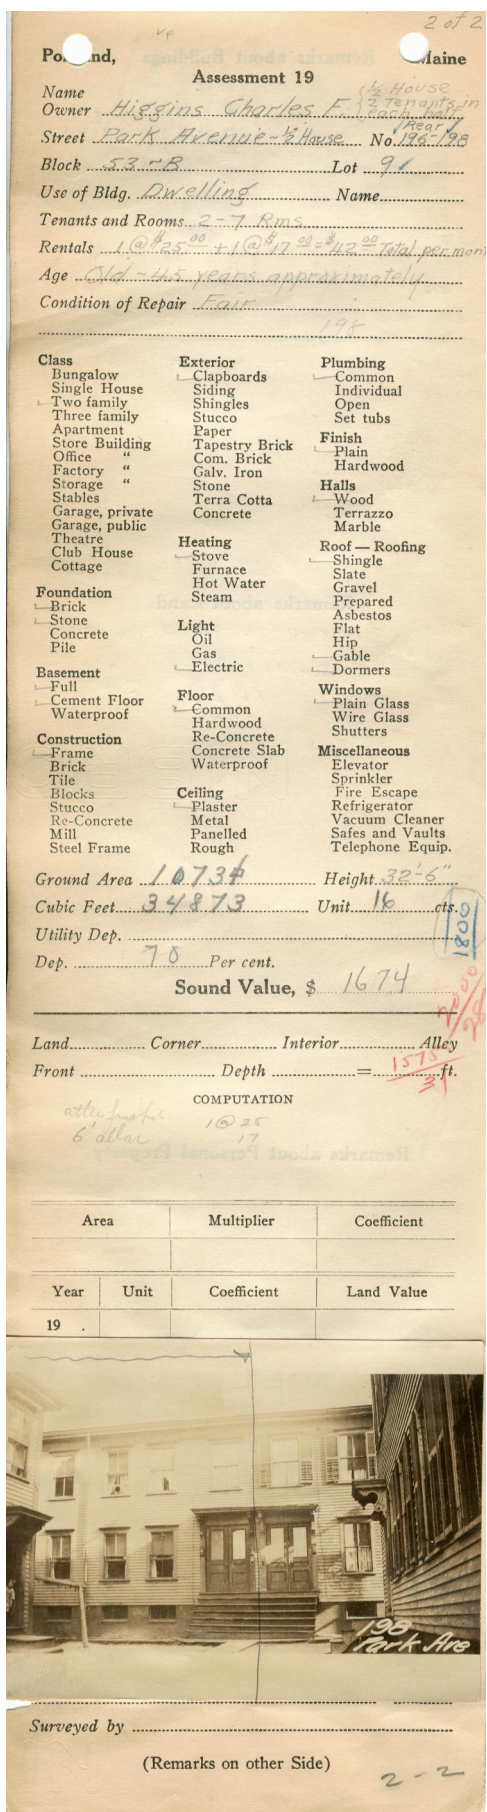 2 of 2
Portland, Maine
Assessment 19
Name
Owner Higgins Charles F. { ½ House
{ 2 Tenants in
each half
Rear
Street Park Avenue ~ ½ House No. 196-198
Block 53-B Lot 9
Use of Bldg. Dwelling Name
Tenants and Rooms 2-7 Rms
Rentals 1 @ $25.00 + 1 @ $17.00 = $42.00 Total per mon
Age Old ~ 45 years approximately
Condition of Repair Fair
198
Class
Bungalow
Single House
Two family
Three family
Apartment
Store Building
Office "
Factory "
Storage "
Stables
Garage, private
Garage, public
Theatre
Club House
Cottage
Foundation
Brick
Stone
Concrete
Pile
Basement
Full
Cement Floor
Waterproof
Construction
Frame
Brick
Tile
Blocks
Stucco
Re-Concrete
Mill
Steel Frame
Exterior
Clapboards
Siding
Shingles
Stucco
Paper
Tapestry Brick
Com. Brick
Galv. Iron
Stone
Terra Cotta
Concrete
Heating
Stove
Furnace
Hot Water
Steam
Light
Oil
Gas
Electric
Floor
Common
Hardwood
Re-Concrete
Concrete Slab
Waterproof
Ceiling
Plaster
Metal
Panelled
Rough
Plumbing
Common
Individual
Open
Set tubs
Finish
Plain
Hardwood
Halls
Wood
Terrazzo
Marble
Roof — Roofing
Shingle
Slate
Gravel
Prepared
Asbestos
Flat
Hip
Gable
Dormers
Windows
Plain Glass
Wire Glass
Shutters
Miscellaneous
Elevator
Sprinkler
Fire Escape
Refrigerator
Vacuum Cleaner
Safes and Vaults
Telephone Equip.
Ground Area 1073 Height 32'-6"
Cubic Feet 34873 Unit 16 cts.
1800
Utility Dep.
Dep. 70 Per cent.
Sound Value, $ 1674
2000/28
Land Corner Interior Alley
Front Depth = ft.
1575/31
COMPUTATION
1 @ 25
17
Area Multiplier Coefficient
Year Unit Coefficient Land Value
19 .
198
Park Ave
Surveyed by
(Remarks on other Side)
2-2